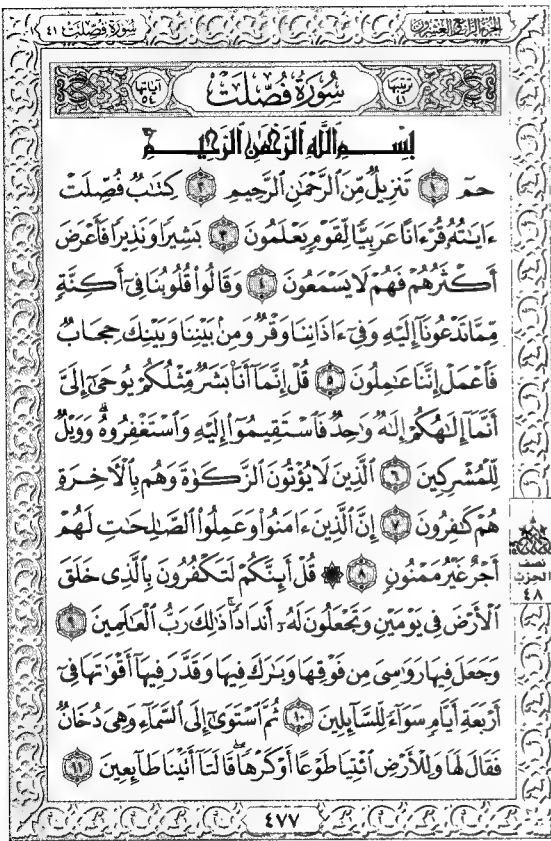 سُورَةُ فُصِّلَت ٤١
الجُزءُ الرَّابِعُ وَالعِشْرُونَ
سُورَةُ فُصِّلَتْ
ترتيبها ٤١
آياتها ٥٤
بِسْمِ ٱللَّهِ ٱلرَّحْمَٰنِ ٱلرَّحِيمِ
حمٓ ١ تَنزِيلٌ مِّنَ ٱلرَّحْمَٰنِ ٱلرَّحِيمِ ٢ كِتَٰبٌ فُصِّلَتْ
ءَايَٰتُهُۥ قُرْءَانًا عَرَبِيًّا لِّقَوْمٍ يَعْلَمُونَ ٣ بَشِيرًا وَنَذِيرًا فَأَعْرَضَ
أَكْثَرُهُمْ فَهُمْ لَا يَسْمَعُونَ ٤ وَقَالُوا۟ قُلُوبُنَا فِىٓ أَكِنَّةٍ
مِّمَّا تَدْعُونَآ إِلَيْهِ وَفِىٓ ءَاذَانِنَا وَقْرٌ وَمِنۢ بَيْنِنَا وَبَيْنِكَ حِجَابٌ
فَٱعْمَلْ إِنَّنَا عَٰمِلُونَ ٥ قُلْ إِنَّمَآ أَنَا۠ بَشَرٌ مِّثْلُكُمْ يُوحَىٰٓ إِلَىَّ
أَنَّمَآ إِلَٰهُكُمْ إِلَٰهٌ وَٰحِدٌ فَٱسْتَقِيمُوٓا۟ إِلَيْهِ وَٱسْتَغْفِرُوهُ ۗ وَوَيْلٌ
لِّلْمُشْرِكِينَ ٦ ٱلَّذِينَ لَا يُؤْتُونَ ٱلزَّكَوٰةَ وَهُم بِٱلْءَاخِرَةِ
هُمْ كَٰفِرُونَ ٧ إِنَّ ٱلَّذِينَ ءَامَنُوا۟ وَعَمِلُوا۟ ٱلصَّٰلِحَٰتِ لَهُمْ
أَجْرٌ غَيْرُ مَمْنُونٍ ٨ ۞ قُلْ أَئِنَّكُمْ لَتَكْفُرُونَ بِٱلَّذِى خَلَقَ
ٱلْأَرْضَ فِى يَوْمَيْنِ وَتَجْعَلُونَ لَهُۥٓ أَندَادًا ۚ ذَٰلِكَ رَبُّ ٱلْعَٰلَمِينَ ٩
وَجَعَلَ فِيهَا رَوَٰسِىَ مِن فَوْقِهَا وَبَٰرَكَ فِيهَا وَقَدَّرَ فِيهَآ أَقْوَٰتَهَا فِىٓ
أَرْبَعَةِ أَيَّامٍ سَوَآءً لِّلسَّآئِلِينَ ١٠ ثُمَّ ٱسْتَوَىٰٓ إِلَى ٱلسَّمَآءِ وَهِىَ دُخَانٌ
فَقَالَ لَهَا وَلِلْأَرْضِ ٱئْتِيَا طَوْعًا أَوْ كَرْهًا ۖ قَالَتَآ أَتَيْنَا طَآئِعِينَ ١١
نصف
الحزب
٤٨
٤٧٧